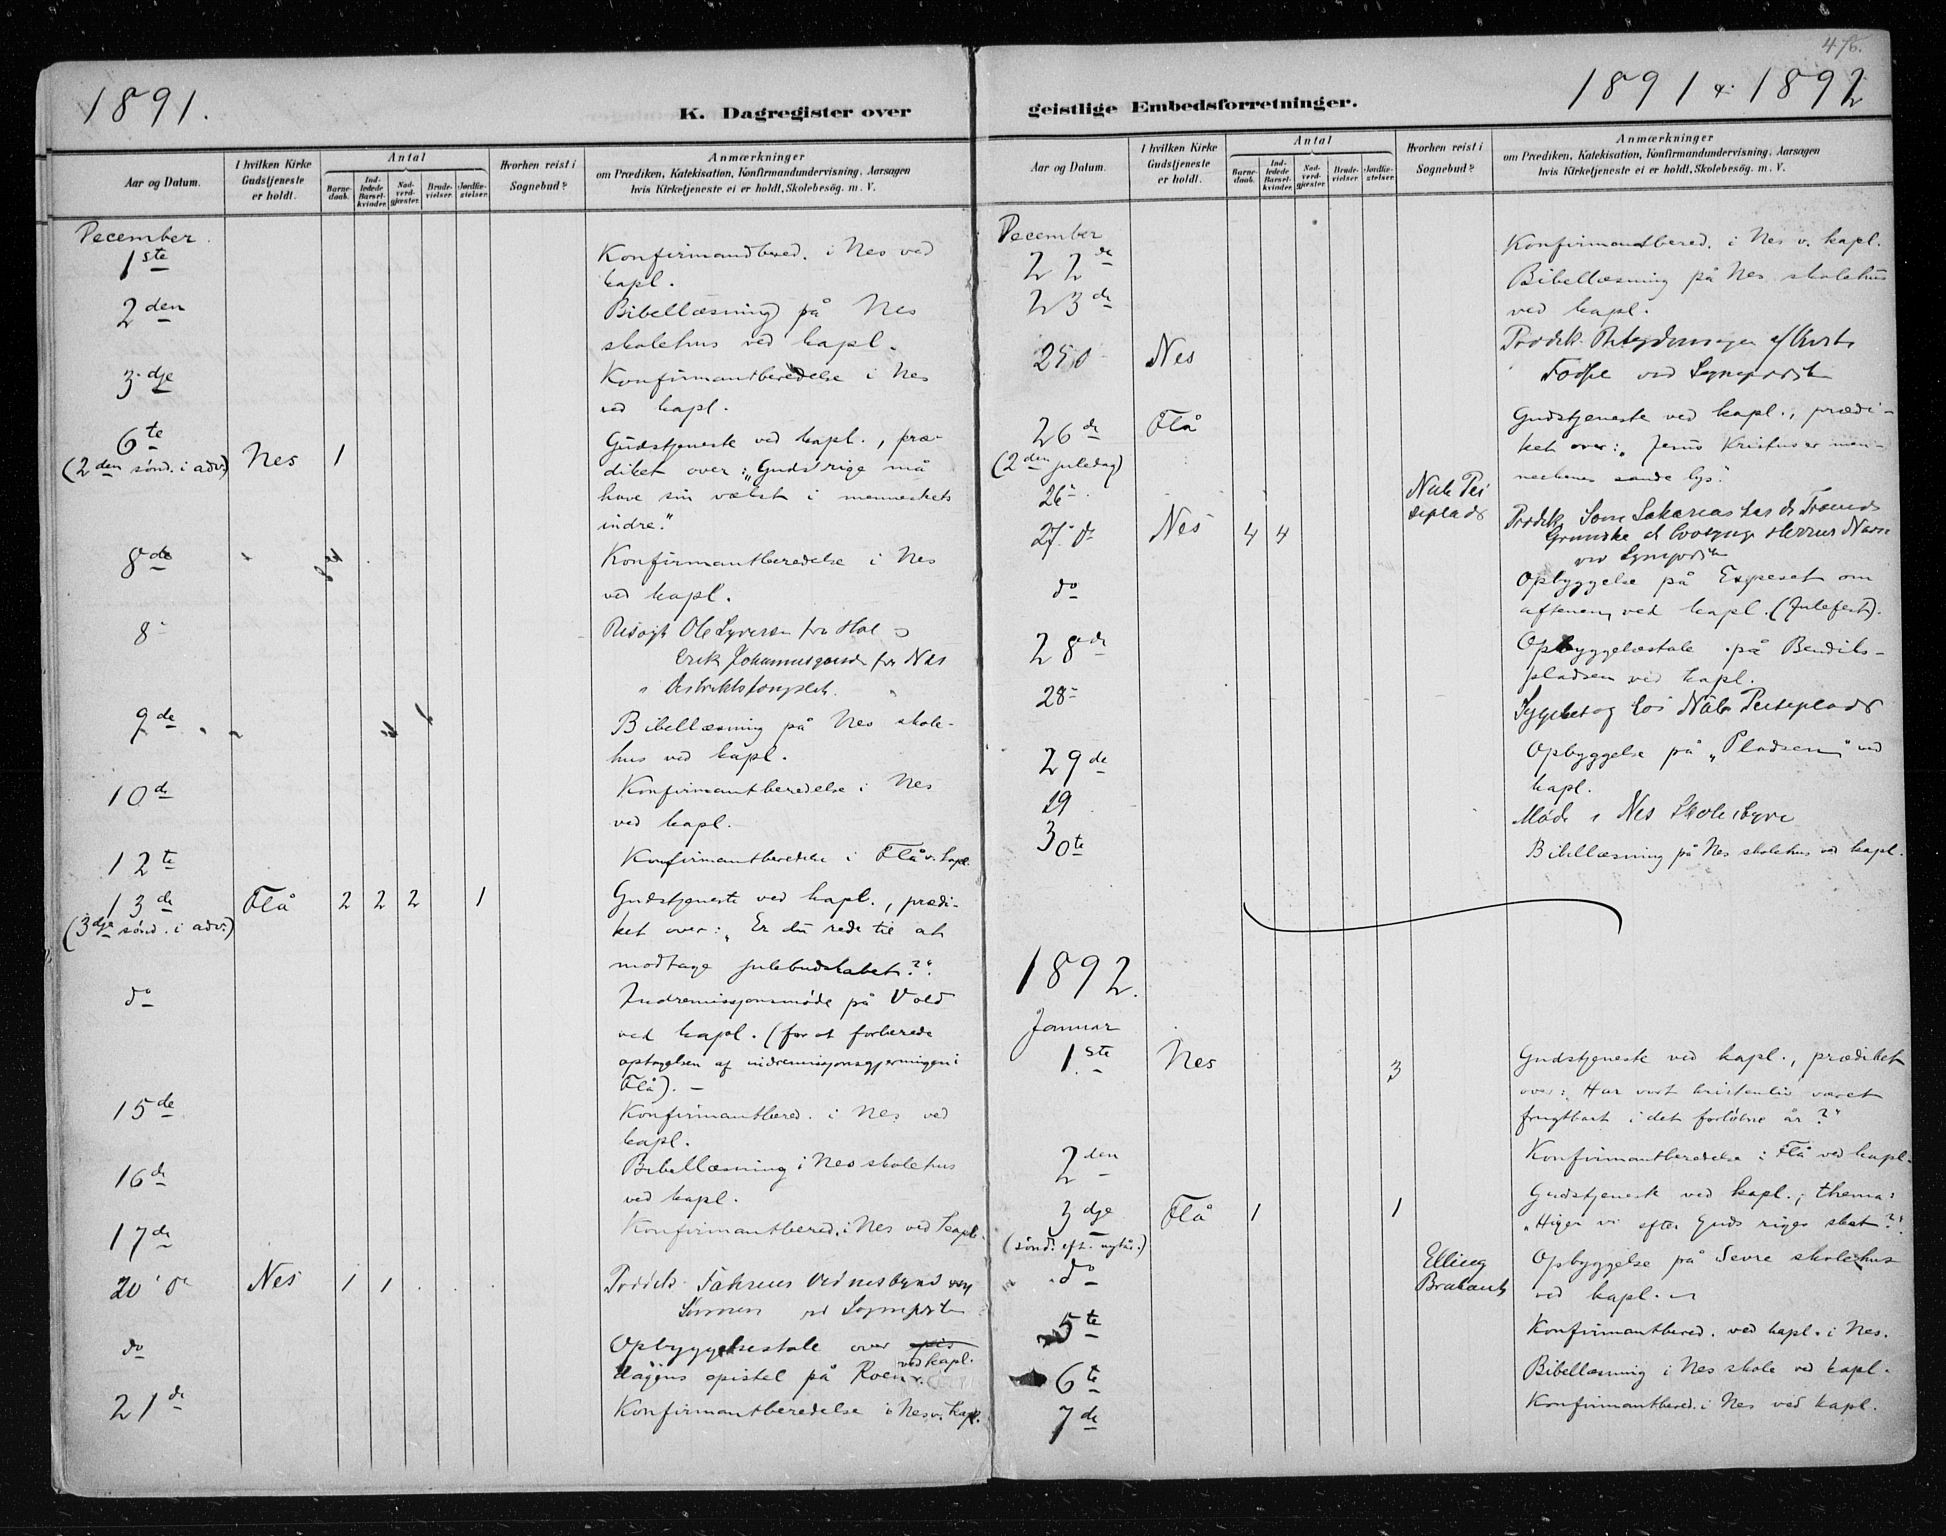 476.
1891.
K. Dagregister over
Aar og Datum.
I hvilken Kirke
Gudstjeneste
er holdt.
Antal
Barne-
daab.
Ind-
ledede
Barsel-
kvinder.
Nad-
verd-
gjæster.
Brude-
vielser.
Jordfæ-
stelser.
Hvorhen reist i
Sognebud?
Anmærkninger
om Prædiken, Katekisation, Konfirmandundervisning, Aarsagen
hvis Kirketjeneste ei er holdt, Skolebesøg. m. V.
December
1ste Konfirmandbered. i Nes ved
kapl.
2den Bibellæsning på Nes
skolehus ved kapl.
3dje Konfirmantberedelse i Nes
ved kapl.
6te Gudstjeneste ved kapl., præ-
(2den sönd. i adv.) Nes 1 diket over: „Guds rige må
have sin vækst i menneskets
indre."
8de Konfirmantberedelse i Nes
ved kapl.
8 Besögt Ole Syversen fra Hol
Erik Johannesgaard fra Nes
i Distriktsfængslet.
9de Bibellæsning på Nes skole-
hus ved kapl.
10de Konfirmantberedelse i Nes
ved kapl.
12te Konfirmantberedelse i Flå v. kapl.
13de Flå 2 2 2 1 Gudstjeneste ved kapl., prædi-
(3dje sönd. i adv.) ket over: „Er du rede til at
modtage julebudskabet?".
do Indremissjonsmöde på Vold
ved kapl. (for at forberede
optagelsen af indremissjonsgjerningen i
Flå). —
15de Konfirmantbered. i Nes ved
kapl.
16de Bibellæsning i Nes skolehus
ved kapl.
17de Konfirmantbered. i Nes ved kapl.
20de Nes 1 1 Prædik. Vidnesbyrd
Sognepr
do Opbyggelsestale over
dagens epistel på Roen ved kapl.
21de Konfirmantberedelse i Nes v. kapl.
1891 & 1892
geistlige Embedsforretninger.
Aar og Datum.
I hvilken Kirke
Gudstjeneste
er holdt.
Antal
Barne-
daab.
Ind-
ledede
Barsel-
kvinder.
Nad-
verd-
gjæster.
Brude-
vielser.
Jordfæ-
stelser.
Hvorhen reist i
Sognebud?
Anmærkninger
om Prædiken, Katekisation, Konfirmandundervisning, Aarsagen
hvis Kirketjeneste ei er holdt, Skolebesøg. m. V.
December
22de Konfirmantbered. i Nes v. kapl.
23de Bibellæsning på Nes skolehus
ved kapl.
25d Nes Prædik. Betydningen af Christi
Födsel ved Sognepr
26de Flå Gudstjeneste ved kapl., prædi-
(2den juledag) ket over: „Jesus Kristus er men-
neskenes sande lys."
26
27de Nes 4 4 Prædik.
ved Sognepr
do Opbyggelse på Espeset om
aftenen, ved kapl. (Julefest).
28de Opbyggelsestale på Bendiks-
pladsen ved kapl.
28 Sygebesög hos
29de Opbyggelse på „Pladsen" ved
kapl.
29 Möde i Nes Skolestyre
30te Bibellæsning på Nes skolehus ved kapl.
1892.
Januar
1ste Nes 3 Gudstjeneste ved kapl., prædiket
over: „Har vort kristenliv været
frugtbart i det forlöbne år?"
2den Konfirmantberedelse i Flå ved kapl.
3dje Flå 1 1 Gudstjeneste ved kapl.; thema:
(sönd. eft. nytår.) „Higer vi efter Guds riges skat?"
do Elling
Brakant Opbyggelse på Sevre skolehus
ved kapl.
5te Konfirmantbered. ved kapl. i Nes.
6te Bibellæsning i Nes skole ved kapl.
7de Konfirmantbered. i Nes ved kapl.